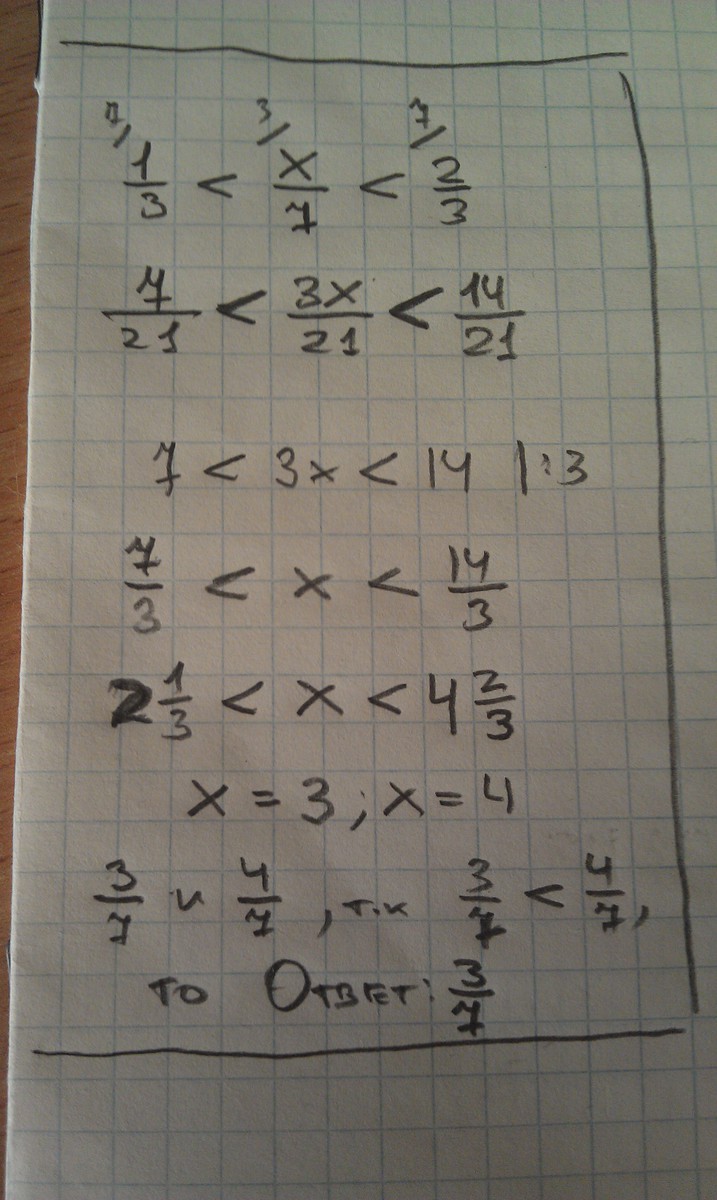 7/ 3/ 7/
1/3 < x/7 < 2/3
7/21 < 3x/21 < 14/21
7 < 3x < 14 |:3
7/3 < x < 14/3
2 1/3 < x < 4 2/3
x = 3; x = 4
3/7 и 4/7, т.к 3/7 < 4/7,
то Ответ: 3/7